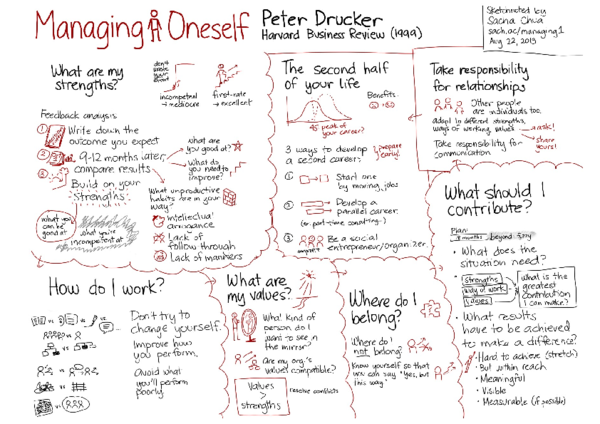 Managing Oneself
Peter Drucker
Harvard Business Review (1999)
Sketchnoted by
Sacha Chua
sach.ac/managing1
Aug 22, 2013
What are my
strengths?
don't
your
effort
incompetent
→ mediocre
first-rate
→ excellent
Feedback analysis
1 Write down the
outcome you expect
2 9-12 months later,
compare results
3 Build on your
strengths
What are
you good at?
What do
you need to
improve?
What unproductive
habits are in your
way?
Intellectual
arrogance
Lack of
follow through
Lack of manners
what you
can be
good at
what you're
incompetent at
The second half
of your life
Benefits:
45 peak of
your career?
3 ways to develop
a second career:
prepare
early!
1 Start one
by moving jobs
2 Develop a
parallel career
(or part-time consulting)
3 Be a social
entrepreneur/organizer
Take responsibility
for relationships
Other people
are individuals too.
Adapt to different strengths,
ways of working, values
→ ask!
Take responsibility for
communication
share
yours!
What should I
contribute?
Plan:
beyond
• What does the
situation need?
strengths
way of work
values
What is the
greatest
contribution
I can make?
• What results
have to be achieved
to make a difference?
• Hard to achieve (stretch)
• But within reach
• Meaningful
• Visible
• Measurable (if possible)
How do I work?
vs
Don't try to
change yourself.
Improve how
you perform.
Avoid what
you'll perform
poorly.
What are
my values?
What kind of
person do I
want to see in
the mirror?
Are my org's
values compatible?
Values
>
strengths
resolve conflicts
Where do I
belong?
Where do I
not belong?
Know yourself so that
you can say "yes, but
this way."